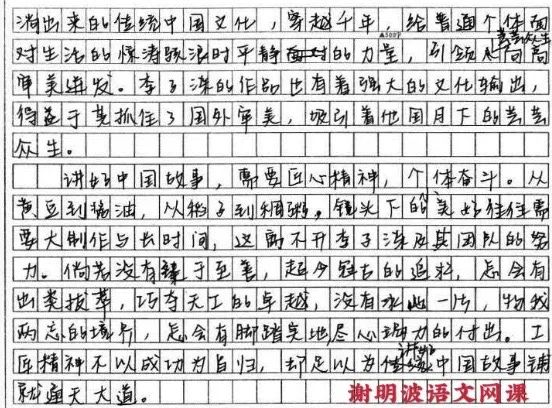 消出来的传统中国文化，穿越千年，给普通个体面
对生活的惊涛骇浪时平静面对的力量，引领芸芸众生向高
审美进发。李子柒的作品也有着强大的文化输出，
得益于其抓住了国外审美，吸引着他国月下的芸芸
众生。
讲好中国故事，需要匠心精神，个体奋斗。从
黄豆到酱油，从稻子到稠粥。镜头下的美好往往需
要大制作与长时间，这离不开李子柒及其团队的努
力。倘若没有臻于至善，超今冠古的追求，怎会有
出类拔萃，巧夺天工的卓越，没有水一片，物我
两忘的境界，怎会有脚踏实地，尽心竭力的付出。工
匠精神不以成功为旨归，却足以为讲好中国故事铺
就通天大道。
▲500字
谢明波语文网课